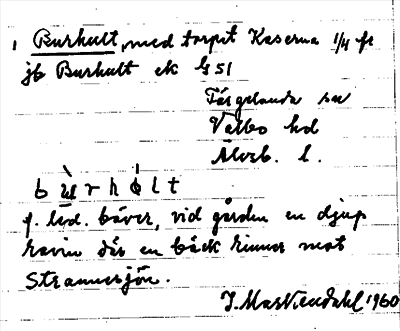 Burkult, med torpet Kaserna 1/4 fr
jfr Burhult ek G 51
Färgelanda sn
Valbo hd
Älvsb. l.
b u r h ö l t
f. led. bäver, vid gården en djup
ravin där en bäck rinner mot
Strannesjön.
1960